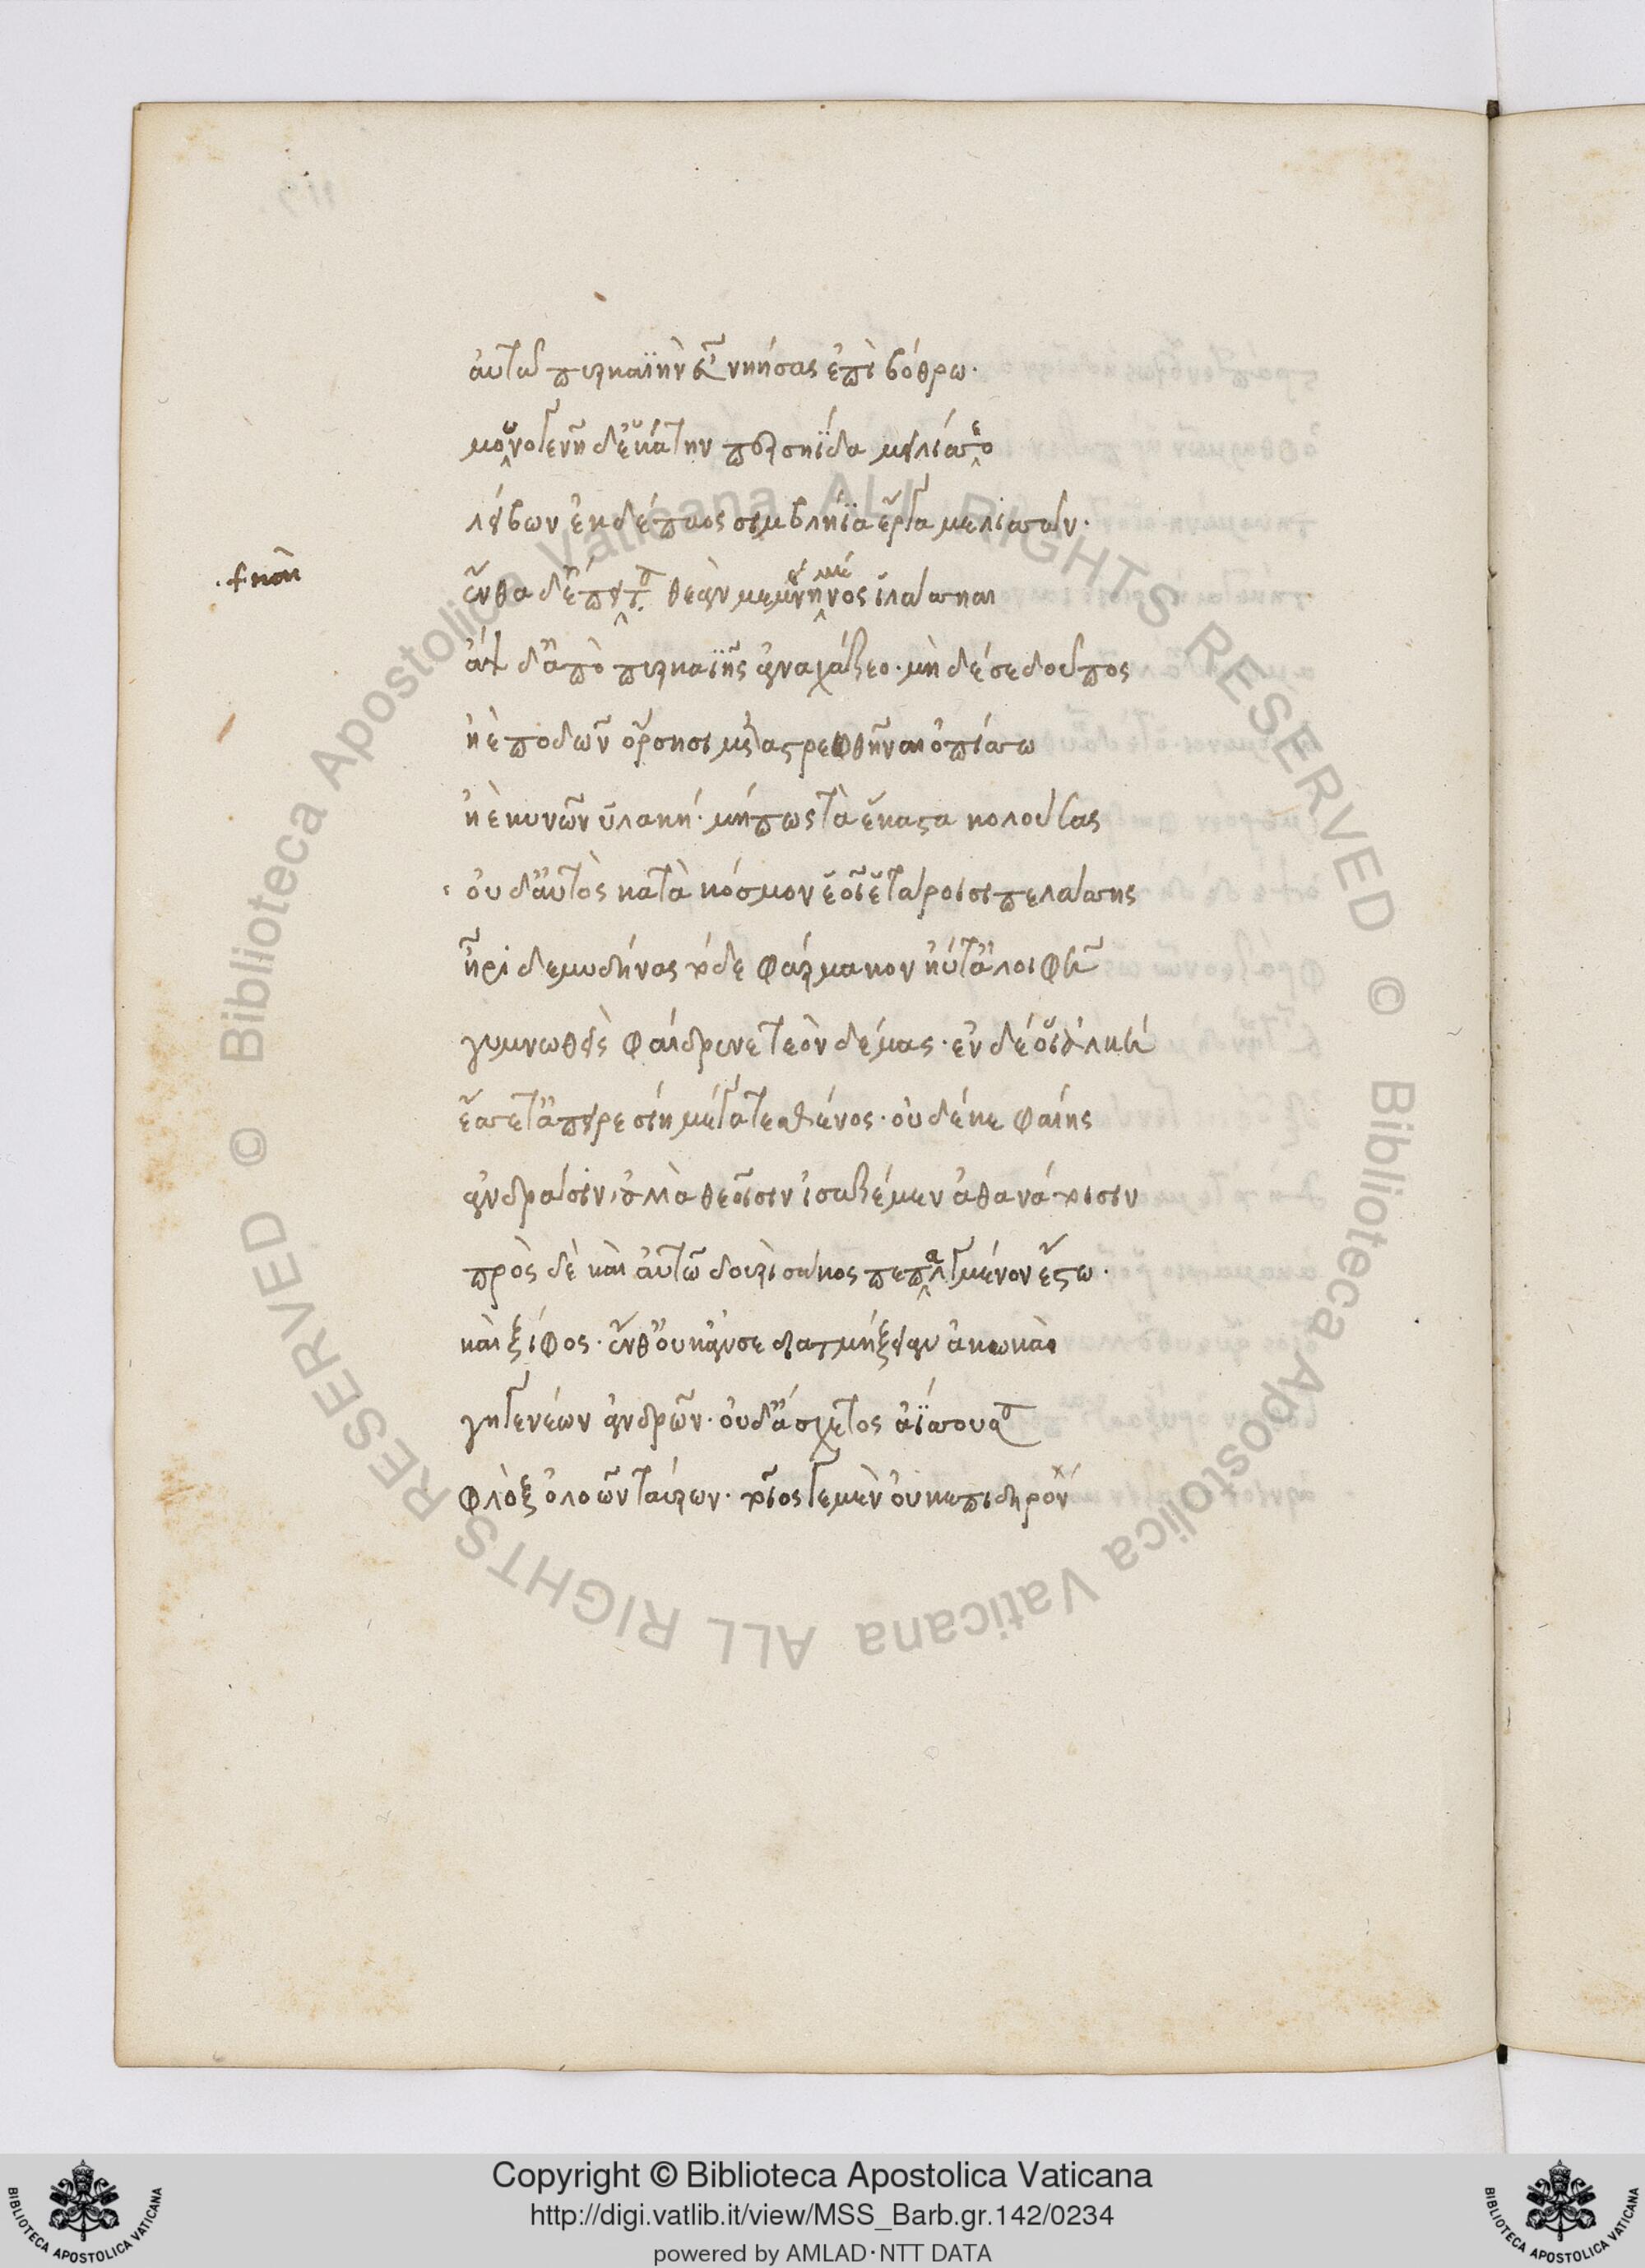 αὐτὰρ πυρκαϊὴν εὖ νηήσας ἐπὶ βόθρω·
μουνογενῆ δ' ἑκάτην περσηΐδα μειλίσσεο
λείβων ἐκ δέπαος σιμβλήϊα ἔργα μελισσῶν·
ἔνθα δ' ἐπεί θεὰν μεμνημένος ἱλάσσηαι
ἂψ δ' ἀπὸ πυρκαϊῆς ἀναχάζεο· μὴ δέ σε δοῦπος
ἠὲ ποδῶν ὄρσησι μεταστρεφθῆναι ὀπίσσω
ἠὲ κυνῶν ὑλακή· μή πως τὰ ἕκαστα κολούσας
οὐδ' αὐτὸς κατὰ κόσμον ἑοῖς ἑτάροισι πελάσσης
ἦρι δε μυδήνας τόδε φάρμακον ἠύτ' ἀλοιφῆ
γυμνωθεὶς φαίδρυνε τεὸν δέμας· ἐν δέ οἱ ἀλκή
ἔσσετ' ἀπειρεσίη μέγα τε σθένος· οὐδέ κε φαίης
ἀνδράσιν, ἀλλὰ θεοῖσιν ἰσαζέμεν ἀθανάτοισιν
πρὸς δὲ καὶ αὐτῶ δουρὶ σάκος πεπαλαγμένον ἔστω·
καὶ ξίφος· ἔνθ' οὐκ ἄν σε διατμήξειαν ἀκωκαὶ
γηγενέων ἀνδρῶν· οὐδ' ἄσχετος ἀΐσσουσα
φλὸξ ὀλοῶν ταύρων· τοῖος γε μὲν οὐκ ἐπὶ δηρόν
Copyright © Biblioteca Apostolica Vaticana
http://digi.vatlib.it/view/MSS_Barb.gr.142/0234
powered by AMLAD·NTT DATA